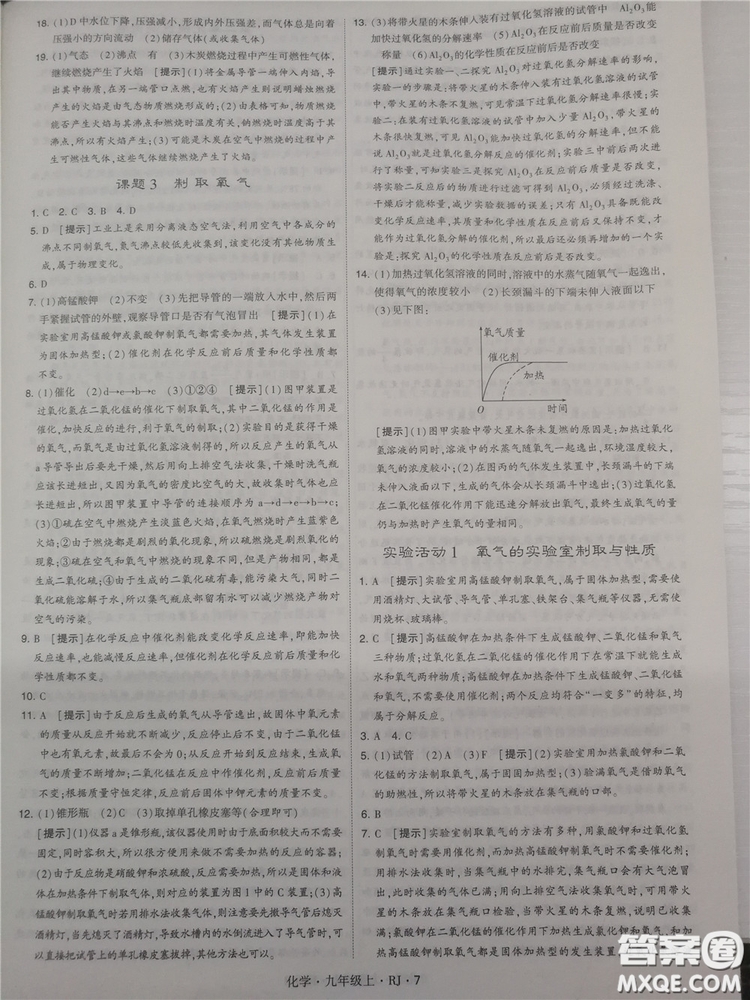 18. (1)D中水位下降,压强减小,形成内外压强差,而气体总是向着
压强小的方向流动 (2)储存气体(或收集气体)
19. (1)气态 (2)沸点 有 (3)木炭燃烧过程中产生可燃性气体,
继续燃烧产生了火焰 [提示](1)将金属导管一端伸入内焰,导
出其中物质,在另一端管口点燃,也有火焰产生则说明蜡烛燃烧
产生的火焰是由气态物质燃烧形成的;(2)由表格可知,物质燃烧
能否产生火焰与其沸点和燃烧时温度有关,钠燃烧时温度高于其
沸点,所以有火焰产生;(3)可能是木炭在空气中燃烧的过程中产
生可燃性气体,这些气体继续燃烧产生了火焰。
课题3 制取氧气
1. C 2. C 3. B 4. D
5. D [提示]工业上是采用分离液态空气法,利用空气中各成分的
沸点不同制氧气,氮气沸点较低先收集到,该变化没有其他物质生
成,属于物理变化。
6. D
7. (1)高锰酸钾 (2)不变 (3)先把导管的一端放入水中,然后两
手紧握试管的外壁,观察导管口是否有气泡冒出 [提示](1)在
实验室用高锰酸钾或氯酸钾制氧气都需要加热,其气体发生装置
为固体加热型;(2)催化剂在化学反应前后质量和化学性质都
不变。
8. (1)催化 (2)d→e→c→b (3)①②④ [提示](1)图甲装置是
过氧化氢在二氧化锰的催化下制取氧气,其中二氧化锰的作用是
催化,加快反应的进行,利于氧气的制取;(2)实验目的是获得干燥
的氧气,而氧气是由过氧化氢溶液制得的,所以反应产生的氧气从
a导管导出后要先干燥,然后用向上排空气法收集,干燥时洗气瓶
应该长进短出,又因为氧气的密度比空气的大,故收集时气体也应
长进短出,所以图甲装置中导管的连接顺序为a→d→e→c→b;
(3)①硫在空气中燃烧产生淡蓝色火焰,在氧气燃烧时产生蓝紫色
火焰;②因为燃烧都是剧烈的氧化现象,所以硫燃烧是剧烈的氧化
现象;③硫在空气和氧气中燃烧的现象不同,但是产物相同,都是
生成二氧化硫;④二氧化硫有毒,能污染大气,同时二
氧化硫能溶解于水,所以集气瓶底部留有水可以减少燃烧产物对
空气的污染。
9. B [提示]在化学反应中催化剂能改变化学反应速率,即能加快
反应速率,也能减慢反应速率,但催化剂在化学反应前后质量和化
学性质都不变。
10. C
11. A [提示]由于反应后生成的氧气从导管逸出,故固体中氧元素
的质量从反应开始就不断减少,反应停止后不变,由于二氧化锰
中也有氧元素,故最后不会为0;从反应开始到反应结束,生成氧
气的质量不断增加;二氧化锰在反应中作催化剂,反应前后质量
不变;根据质量守恒定律,反应前后固体中钾元素的质量不变。
12. (1)锥形瓶 (2)C (3)取掉单孔橡皮塞等(合理即可)
[提示](1)仪器a是锥形瓶,该仪器使用时由于底面积较大而不需要
固定,同时容积大,所以很方便用来做不需要加热的反应的容器;
(2)由于反应物是硝酸钾和浓硫酸,反应条件是加热,所以是固体和液
体在加热条件下制取气体,则对应的装置为图1中的C装置;(3)高
锰酸钾制取氧气时若用排水法收集气体,则注意要先撤导气管后熄灭
酒精灯,当先熄灭了酒精灯,导致水槽内的水倒流进入了导气管时,可
以直接把试管上的单孔橡皮塞拔掉,其他方法也可以。
13. (3)将带火星的木条伸入装有过氧化氢溶液的试管中 Al₂O₃能
加快过氧化氢的分解速率 (5)Al₂O₃的质量在反应前后是否改变
称量 (6)Al₂O₃的化学性质在反应前后是否改变
[提示]通过实验一、二探究Al₂O₃对过氧化氢分解速率的影响,
实验一的步骤是:将带火星的木条伸入装有过氧化氢溶液的试管
中,带火星的木条不复燃,可见常温下过氧化氢分解速率很慢;实
验二:在装有过氧化氢溶液的试管中加入少量Al₂O₃,带火星的木
条很快复燃,可见Al₂O₃能加快过氧化氢的分解速率,但不能
说明Al₂O₃就是过氧化氢分解反应的催化剂;实验三中两次进
行了称量,可知实验三是探究Al₂O₃的质量在反应前后是否改变,
将实验二反应后的物质进行过滤可得到Al₂O₃,必须经过洗涤、
干燥后才能称量,减少实验数据的误差;只有Al₂O₃具备既能改
变化学反应速率,其质量和化学性质在反应前后又保持不变,才
能作为过氧化氢分解的催化剂,所以最后还必须再增加的一个实
验是:探究Al₂O₃的化学性质在反应前后是否发生改变。
14. (1)加热过氧化氢溶液的同时,溶液中的水蒸气随氧气一起逸出,
使得氧气的浓度较小 (2)长颈漏斗的下端未伸入液面以下
(3)见下图:
氧气质量
催化剂
加热
O 时间
[提示](1)图甲实验中带火星木条未复燃的原因是:加热过氧化
氢溶液的同时,溶液中的水蒸气随氧气一起逸出,环境湿度较大,
氧气的浓度较小;(2)在图丙的气体发生装置中,长颈漏斗的下端
未伸入液面以下,生成的气体会从长颈漏斗处逸出;(3)过氧化氢
在二氧化锰催化作用下能迅速分解放出氧气,最终生成氧气的量
仍与加热时产生氧气的质量相同。
实验活动1 氧气的实验室制取与性质
1. A [提示]实验室用高锰酸钾制取氧气,属于固体加热型,需要使
用酒精灯、大试管、导气管、单孔塞、铁架台、集气瓶等仪器,无需使
用烧杯、玻璃棒。
2. C [提示]高锰酸钾在加热条件下生成锰酸钾、二氧化锰和氧气
三种物质;过氧化氢在二氧化锰的催化作用下在常温下就能生成
水和氧气两种物质;高锰酸钾在加热条件下生成锰酸钾、二氧化锰
和氧气,不需要使用催化剂;两个反应均符合“一变多”的特征,均
属于分解反应。
3. A 4. C
5. (1)试管 (2)A (3)F [提示](2)实验室用加热氯酸钾和二氧
化锰的方法制取氧气,属于固固加热型;(3)验满氧气是借助氧气
的助燃性,所以将带火星的木条放在集气瓶的口部。
6. B
7. C [提示]实验室制取氧气的方法有多种,用氯酸钾和过氧化氢
制氧气时需要用催化剂,而用高锰酸钾制氧气时不需要催化剂;
用排水法收集时,当集气瓶中的水排完,集气瓶口会有大气泡冒
出,此时收集的气体已满;用向上排空气法收集氧气时,可用带火
星的木条放在集气瓶口检验,当带火星的木条复燃,说明已收集
满;氯酸钾在催化剂二氧化锰的作用下生成氯化钾和氧气,不
化学·九年级上·RJ·7
答案圈
MXQE.COM